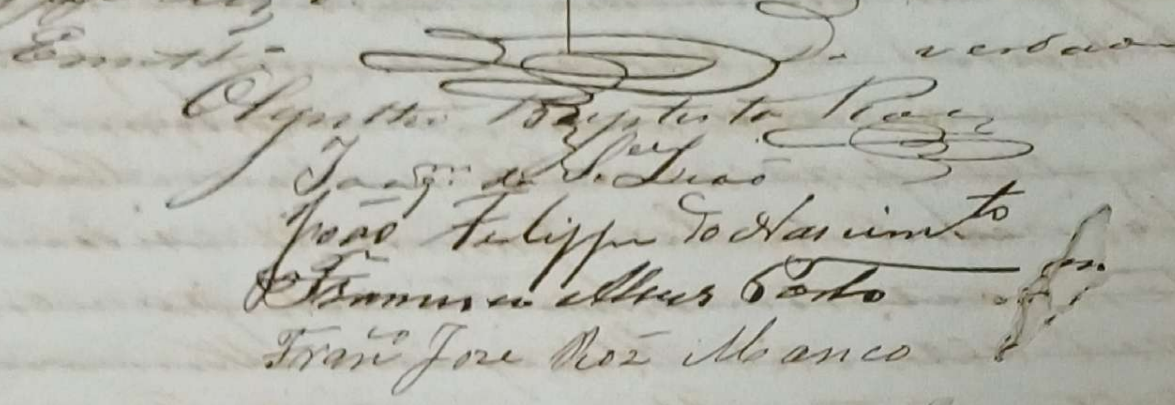 verdade
Olyntho Baptista Roiz
Joaqm de S. Leão
João Felippe do Nascimto
Francisco Alves Porto
Franco Jose Roz Manco